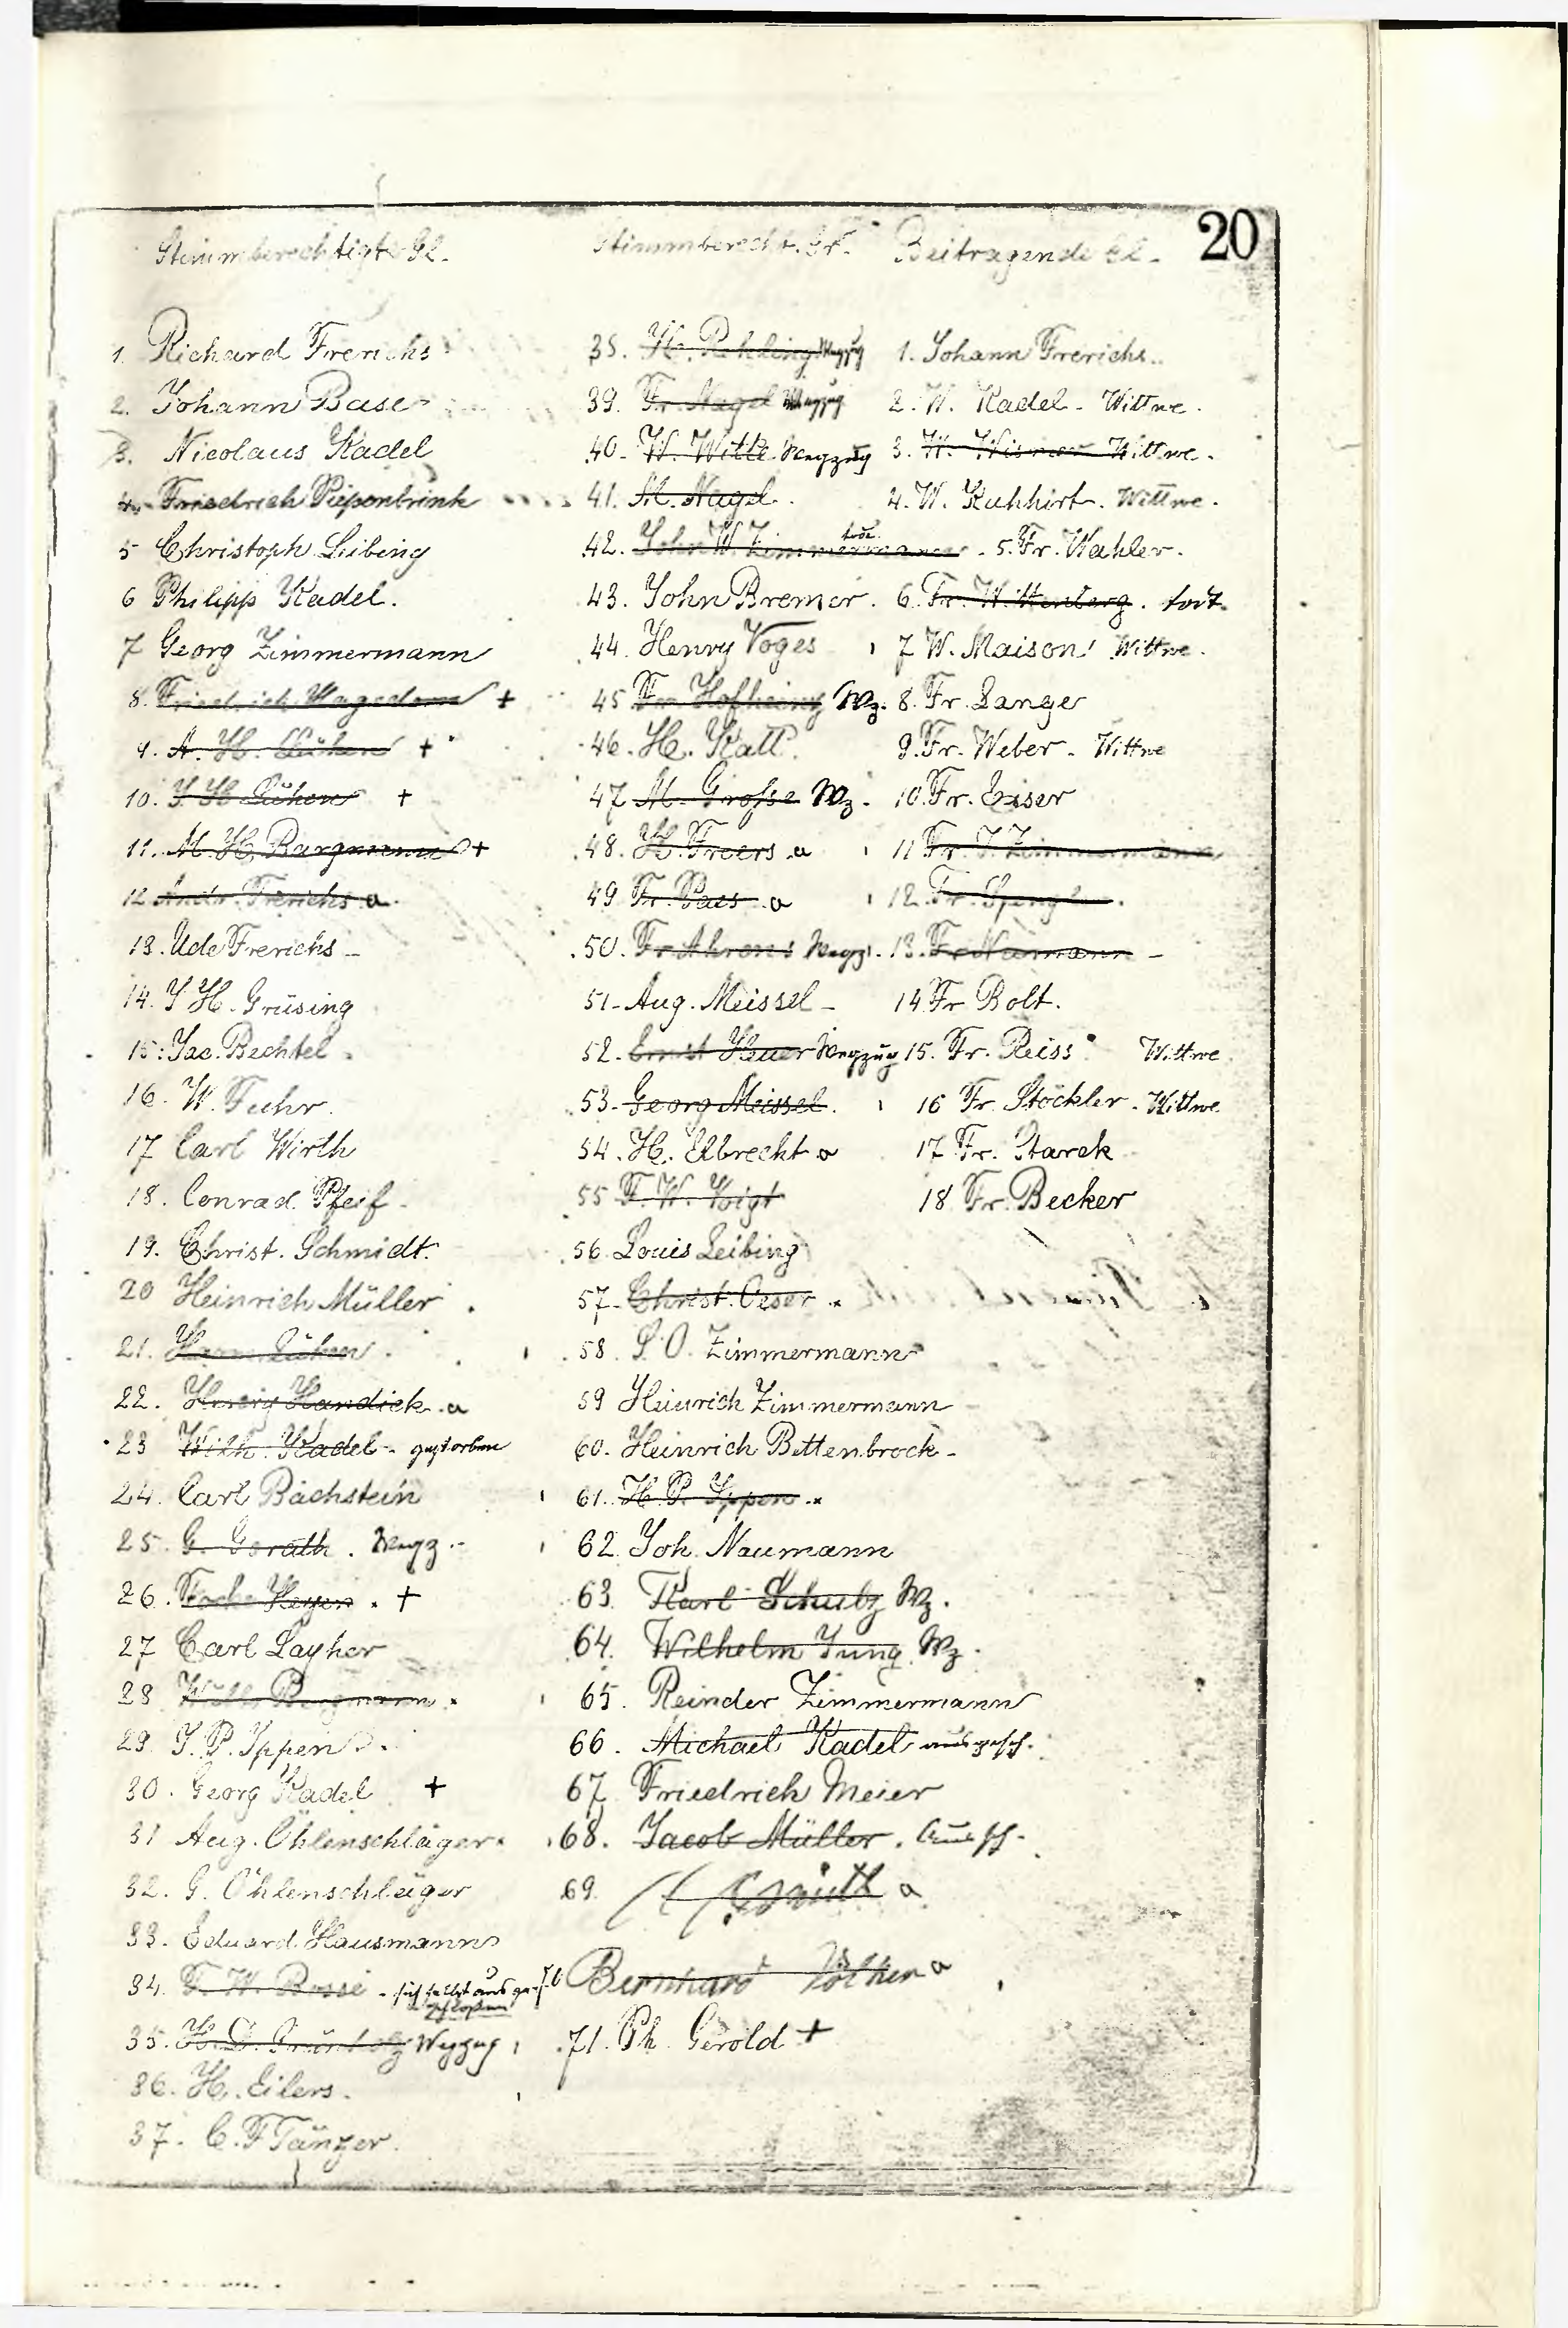 20
Stimmberechtigte Gl.
1. Richard Frerichs
2. Johann Base
3. Nicolaus Kadel
4. Friedrich Piepenbrink
5 Christoph Leibing
6 Philipp Kadel.
7 Georg Zimmermann
8. Friedrich Hagedorn +
9. A. H. Lühen +
10. J H Lühen +
11. M. H. Bargmann +
12 Andr. Frerichs a.
13. Ude Frerichs -
14. J H. Grüsing
15. Jac. Bechtel.
16. W. Fuhr.
17 Carl Wirth
18. Conrad Pfeif.
19. Christ. Schmidt.
20 Heinrich Müller.
21. Lühen.
22. Handick a
23 Wilh. Kadel - gestorben
24. Carl Bachstein
25. G. Gerath. Wegz.
26. Heyen. +
27 Carl Layher
28
29. J. P. Ippen.
30. Georg Kadel +
31 Aug. Öhlenschläger.
32. G. Öhlenschläger
33. Eduard Hausmann
34. F. W. Bosse - sich selbst ausge-
schloßen
35. H. Wegzug
36. H. Eilers.
37. C. F Tänzer.
Stimmberecht. Gl.
38. H. Rehling Wegzug
39. Fr. Nagel Wegzug
40. W. Witte Wegzug
41. M. Nagel.
42. John W Zimmermann todt.
43. John Bremer.
44. Henry Voges
45 Fr. Hofheinz Wz.
46. H. Katt.
47 M. Große Wz.
48. H. Freers a
49 Fr. Paes a
50. Fr Ahrens Wegz.
51. Aug. Meissel -
52. Ernst Heuer Wegzug
53. Georg Meissel.
54. H. Elbrecht a
55 F. W. Voigt
56. Louis Leibing
57. Christ. Oeser
58. L. O. Zimmermann
59 Heinrich Zimmermann
60. Heinrich Bettenbrock -
61. H. P. Ippen
62. Joh. Naumann
63. Karl Schulz Wz.
64. Wilhelm Jung Wz.
65. Reinder Zimmermann
66. Michael Kadel ausgesch.
67 Friedrich Meier
68. Jacob Müller. Ausgsch.
69. a
70 Bernhard a
71. Ph. Gerold +
Beitragende Gl.
1. Johann Frerichs.
2. W. Kadel - Wittwe.
3. W. Wismer Wittwe.
4. W. Kuhhirt. Wittwe.
5. Fr. Wahler.
6. Fr. Wittenberg. todt.
7 W. Maison Wittwe.
8. Fr. Langer
9. Fr. Weber - Wittwe
10. Fr. Eiser
11 Fr. J. Zimmermann
12. Fr. Spengler.
13. Fr Naumann -
14 Fr Bolt.
15. Fr. Reiss Wittwe
16 Fr. Stöckler - Wittwe
17 Fr. Starck
18 Fr. Becker